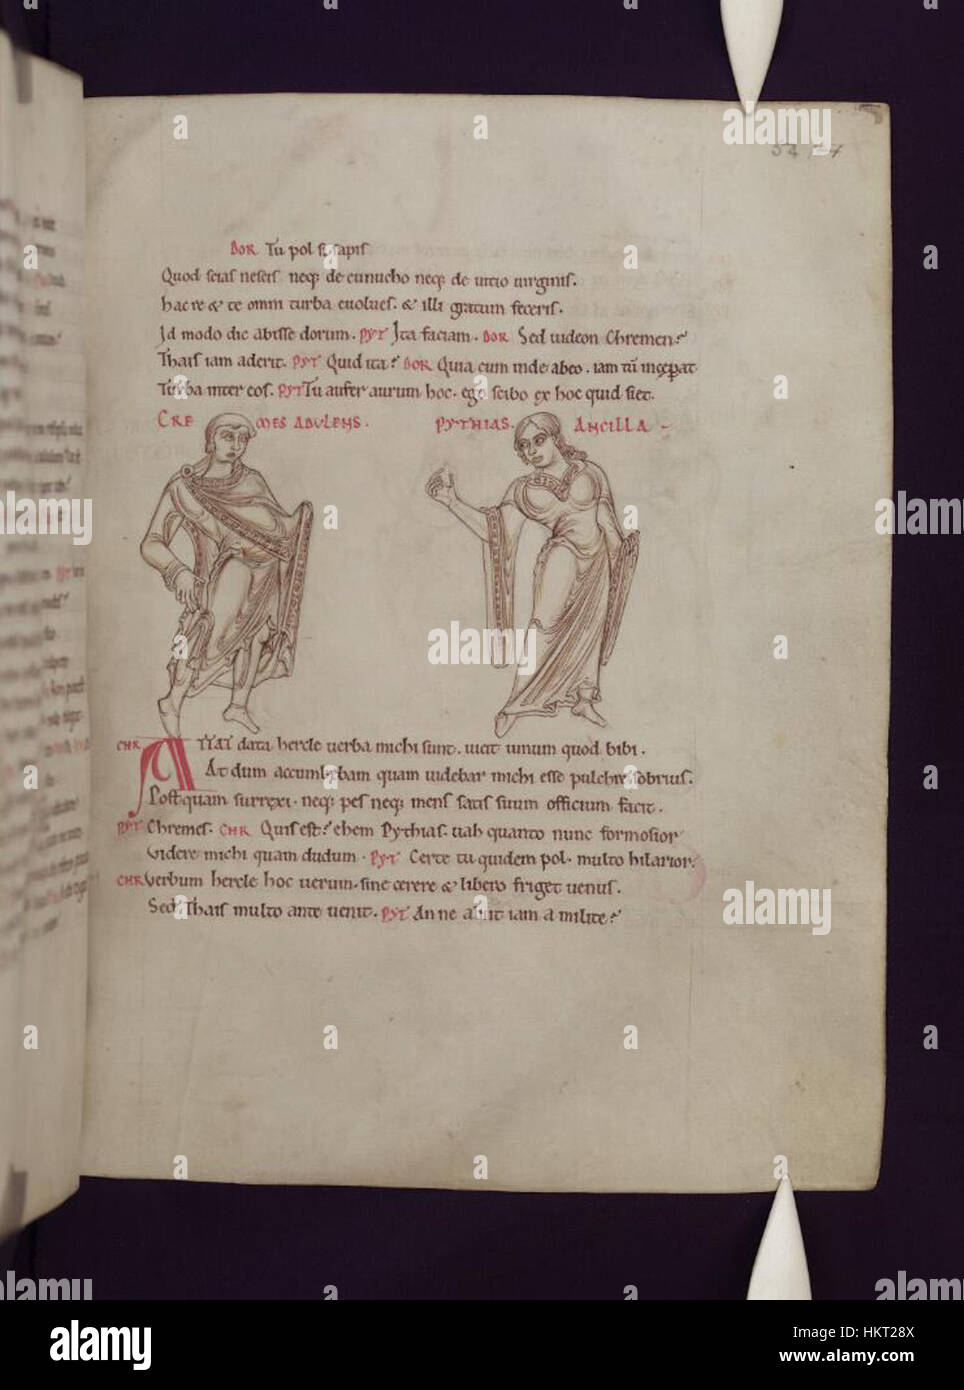 DOR Tu pol si sapis
Quod scias nescis neq; de eunucho neq; de uitio uirginis.
hac re & te omni turba euolues. & illi gratum feceris.
Id modo dic abisse dorum. PYT Ita faciam. DOR Sed uideon Chremen?
Thais iam aderit. PYT Quid ita? DOR Quia cum inde abeo. iam tū
Turba inter eos. PYT Tu aufer aurum hoc. ego scibo ex hoc quid siet.
CREMES ADULENS. PYTHIAS. ANCILLA
CHR ATTAT data hercle uerba michi sunt. uicit uinum quod bibi.
At dum accumbebam quam uidebar michi esse pulchre sobrius.
Postquam surrexi. neq; pes neq; mens satis suum officium facit.
PYT Chremes. CHR Quis est? ehem Pythias. uah quanto nunc formosior
Videre michi quam dudum. PYT Certe tu quidem pol. multo hilarior.
CHR Verbum hercle hoc uerum. sine cerere & libero friget uenus.
Sed Thais multo ante uenit. PYT An ne abiit iam a milite?
alamy
a
alamy
Image ID: HKT28X
www.alamy.com